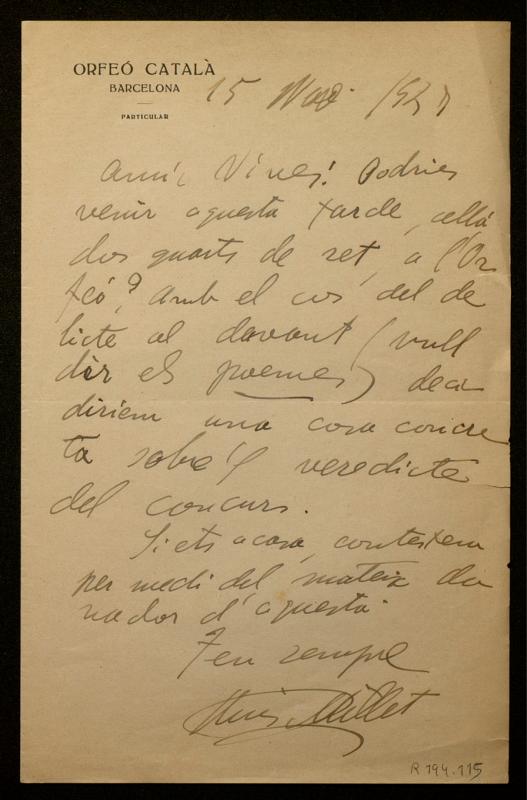 ORFEÓ CATALÀ
BARCELONA
PARTICULAR
15 Març
Amic Vives: Podries
venir aquesta tarde, cellá
dos quarts de set, a l'Or
feó? Amb el cos del de
licte al davant (vull
dir els poemes) deci
diriem una cosa concre
ta sobre'l veredicte
del concurs.
Si ets a casa, contestem
per medi del mateix do
nador d'aquesta.
Teu sempre
Lluis Millet
R 194.115